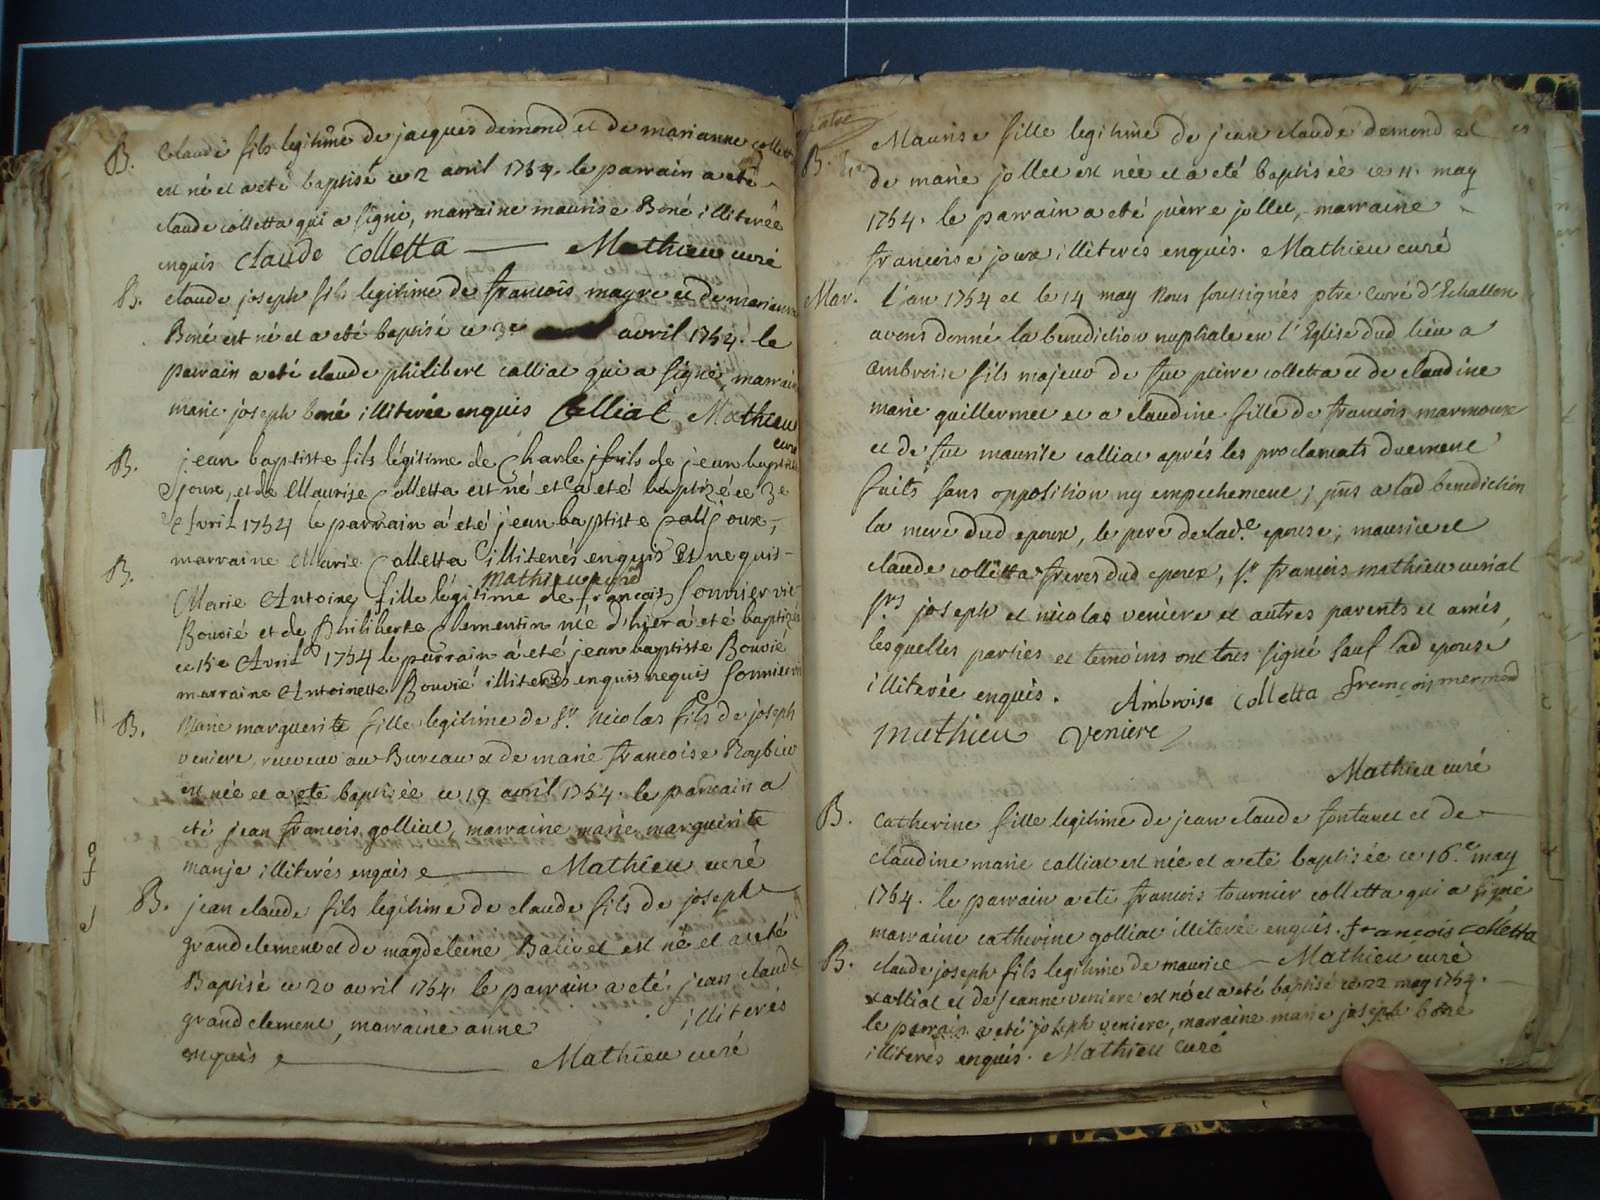 B. Claude fils legitime de jacques demond et de marianne collet
est né et a eté baptisé ce 2 avril 1754. le parrain a eté
claude colletta qui a signé, marraine maurise Boné illiterée
enquis claude colletta Mathieu curé
B. claude joseph fils legitime de francois mayre et de marianne
Boné est né et a eté baptisé ce 3e avril 1754. le
parrain a eté claude philibert calliat qui a signé, marraine
marie joseph boné illiterée enquis Calliat Mathieu
curé
B. jean baptiste fils légitime de Charle fils de jean baptiste
joux, et de Maurise Colletta est né et a eté baptizé ce 3e
Avril 1754 le parrain a été jean baptiste joux,
marraine Marie Colletta illiterés enquis Et requis
Mathieu curé
B. Marie Antoine fille légitime de françois sonnier
Bouvié et de Philiberte Clementin née d'hier a été baptizée
ce 15e Avril 1754 le parrain a été jean baptiste Bouvié
marraine Antoinette Bouvié illiterés enquis requis
B. Marie marguerite fille legitime de Sr. Nicolas fils de joseph
veniere, receveur au Bureau et de marie francoise Roybier
est née et a eté baptisée ce 19 avril 1754. le parrain a
eté jean francois golliat, marraine marie marguerite
manje illiterés enquis Mathieu curé
B. jean claude fils legitime de claude fils de joseph
grandclement et de magdeleine Balivet est né et a eté
Baptisé ce 20 avril 1754. le parrain a eté jean claude
grandclement, marraine anne illiterés
enquis Mathieu curé
Maurise fille legitime de jean claude demond et
B. de marie jollet est née et a eté baptisée ce 11. may
1754. le parrain a eté pierre jollet, marraine
francoise joux illiterés enquis. Mathieu curé
Mar. L'an 1754 et le 14 may Nous soussignés ptre Curé d'Echallon
avons donné la benediction nuptiale en l'Eglise dud lieu a
ambroise fils majeur de feu pierre colletta et de claudine
marie guillermet et a claudine fille de francois marmoux
et de feu maurise calliat aprés les proclamats duement
faits sans opposition ny empechement; pns a lad benediction
la mere dud epoux, le pere de lad.e epouse; maurice et
claude colletta freres dud epoux, Sr. francois mathieu curial
Srs joseph et nicolas veniere et autres parents et amés
lesquelles parties et temoins ont tous signé sauf lad epouse
illiterée enquis. Ambroise Colletta françois mermond
Mathieu Veniere
Mathieu curé
B. Catherine fille legitime de jean claude fontanet et de
claudine marie calliat est née et a eté baptisée ce 16.e may
1754. le parrain a eté francois tournier colletta qui a signé
marraine catherine golliat illiterée enquis. francois colletta
B. claude joseph fils legitime de maurice Mathieu curé
calliat et de jeanne veniere est né et a eté baptisé ce 22 may 1754.
le parrain a eté joseph veniere, marraine marie joseph boné
illiterés enquis. Mathieu Curé